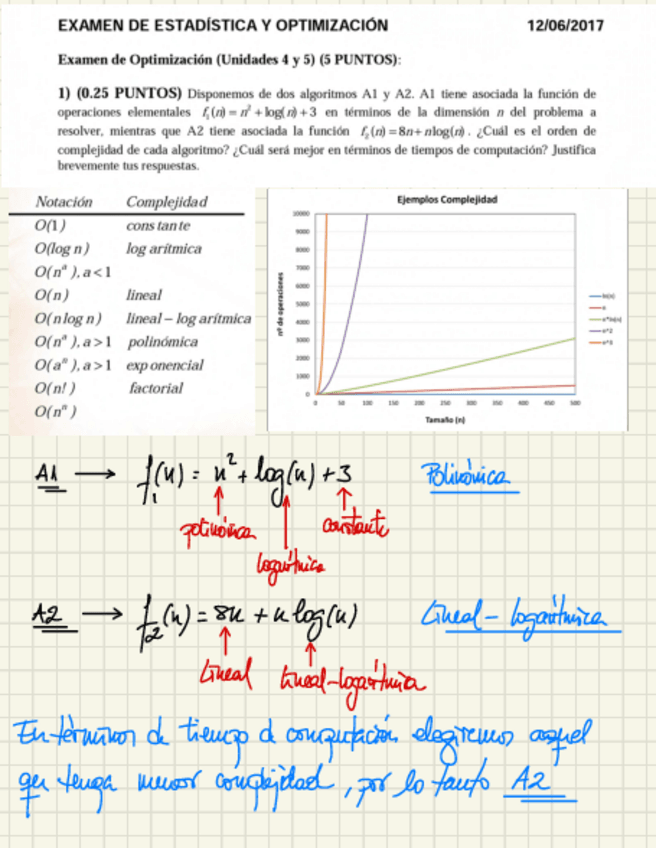 EXAMEN DE ESTADÍSTICA Y OPTIMIZACIÓN 12/06/2017
Examen de Optimización (Unidades 4 y 5) (5 PUNTOS):
1) (0.25 PUNTOS) Disponemos de dos algoritmos A1 y A2. A1 tiene asociada la función de
operaciones elementales f₁(n) = n² + log(n) + 3 en términos de la dimensión n del problema a
resolver, mientras que A2 tiene asociada la función f₂(n) = 8n + nlog(n). ¿Cuál es el orden de
complejidad de cada algoritmo? ¿Cuál será mejor en términos de tiempos de computación? Justifica
brevemente tus respuestas.
Notación Complejidad
O(1) constante
O(log n) logarítmica
O(nᵃ), a<1
O(n) lineal
O(n log n) lineal – logarítmica
O(nᵃ), a>1 polinómica
O(aⁿ), a>1 exponencial
O(n!) factorial
O(nⁿ)
Ejemplos Complejidad
nº de operaciones
10000
9000
8000
7000
6000
5000
4000
3000
2000
1000
0
0 50 100 150 200 250 300 350 400 450 500
Tamaño (n)
ln(n)
n
n*ln(n)
n^2
n^3
A1 → f₁(n) = n² + log(n) + 3 Polinómica
polinómica constante
logarítmica
A2 → f₂(n) = 8n + n log(n) Lineal – logarítmica
Lineal Lineal-logarítmica
En términos de tiempo d computación elegiremos aquel
que tenga menor complejidad, por lo tanto A2